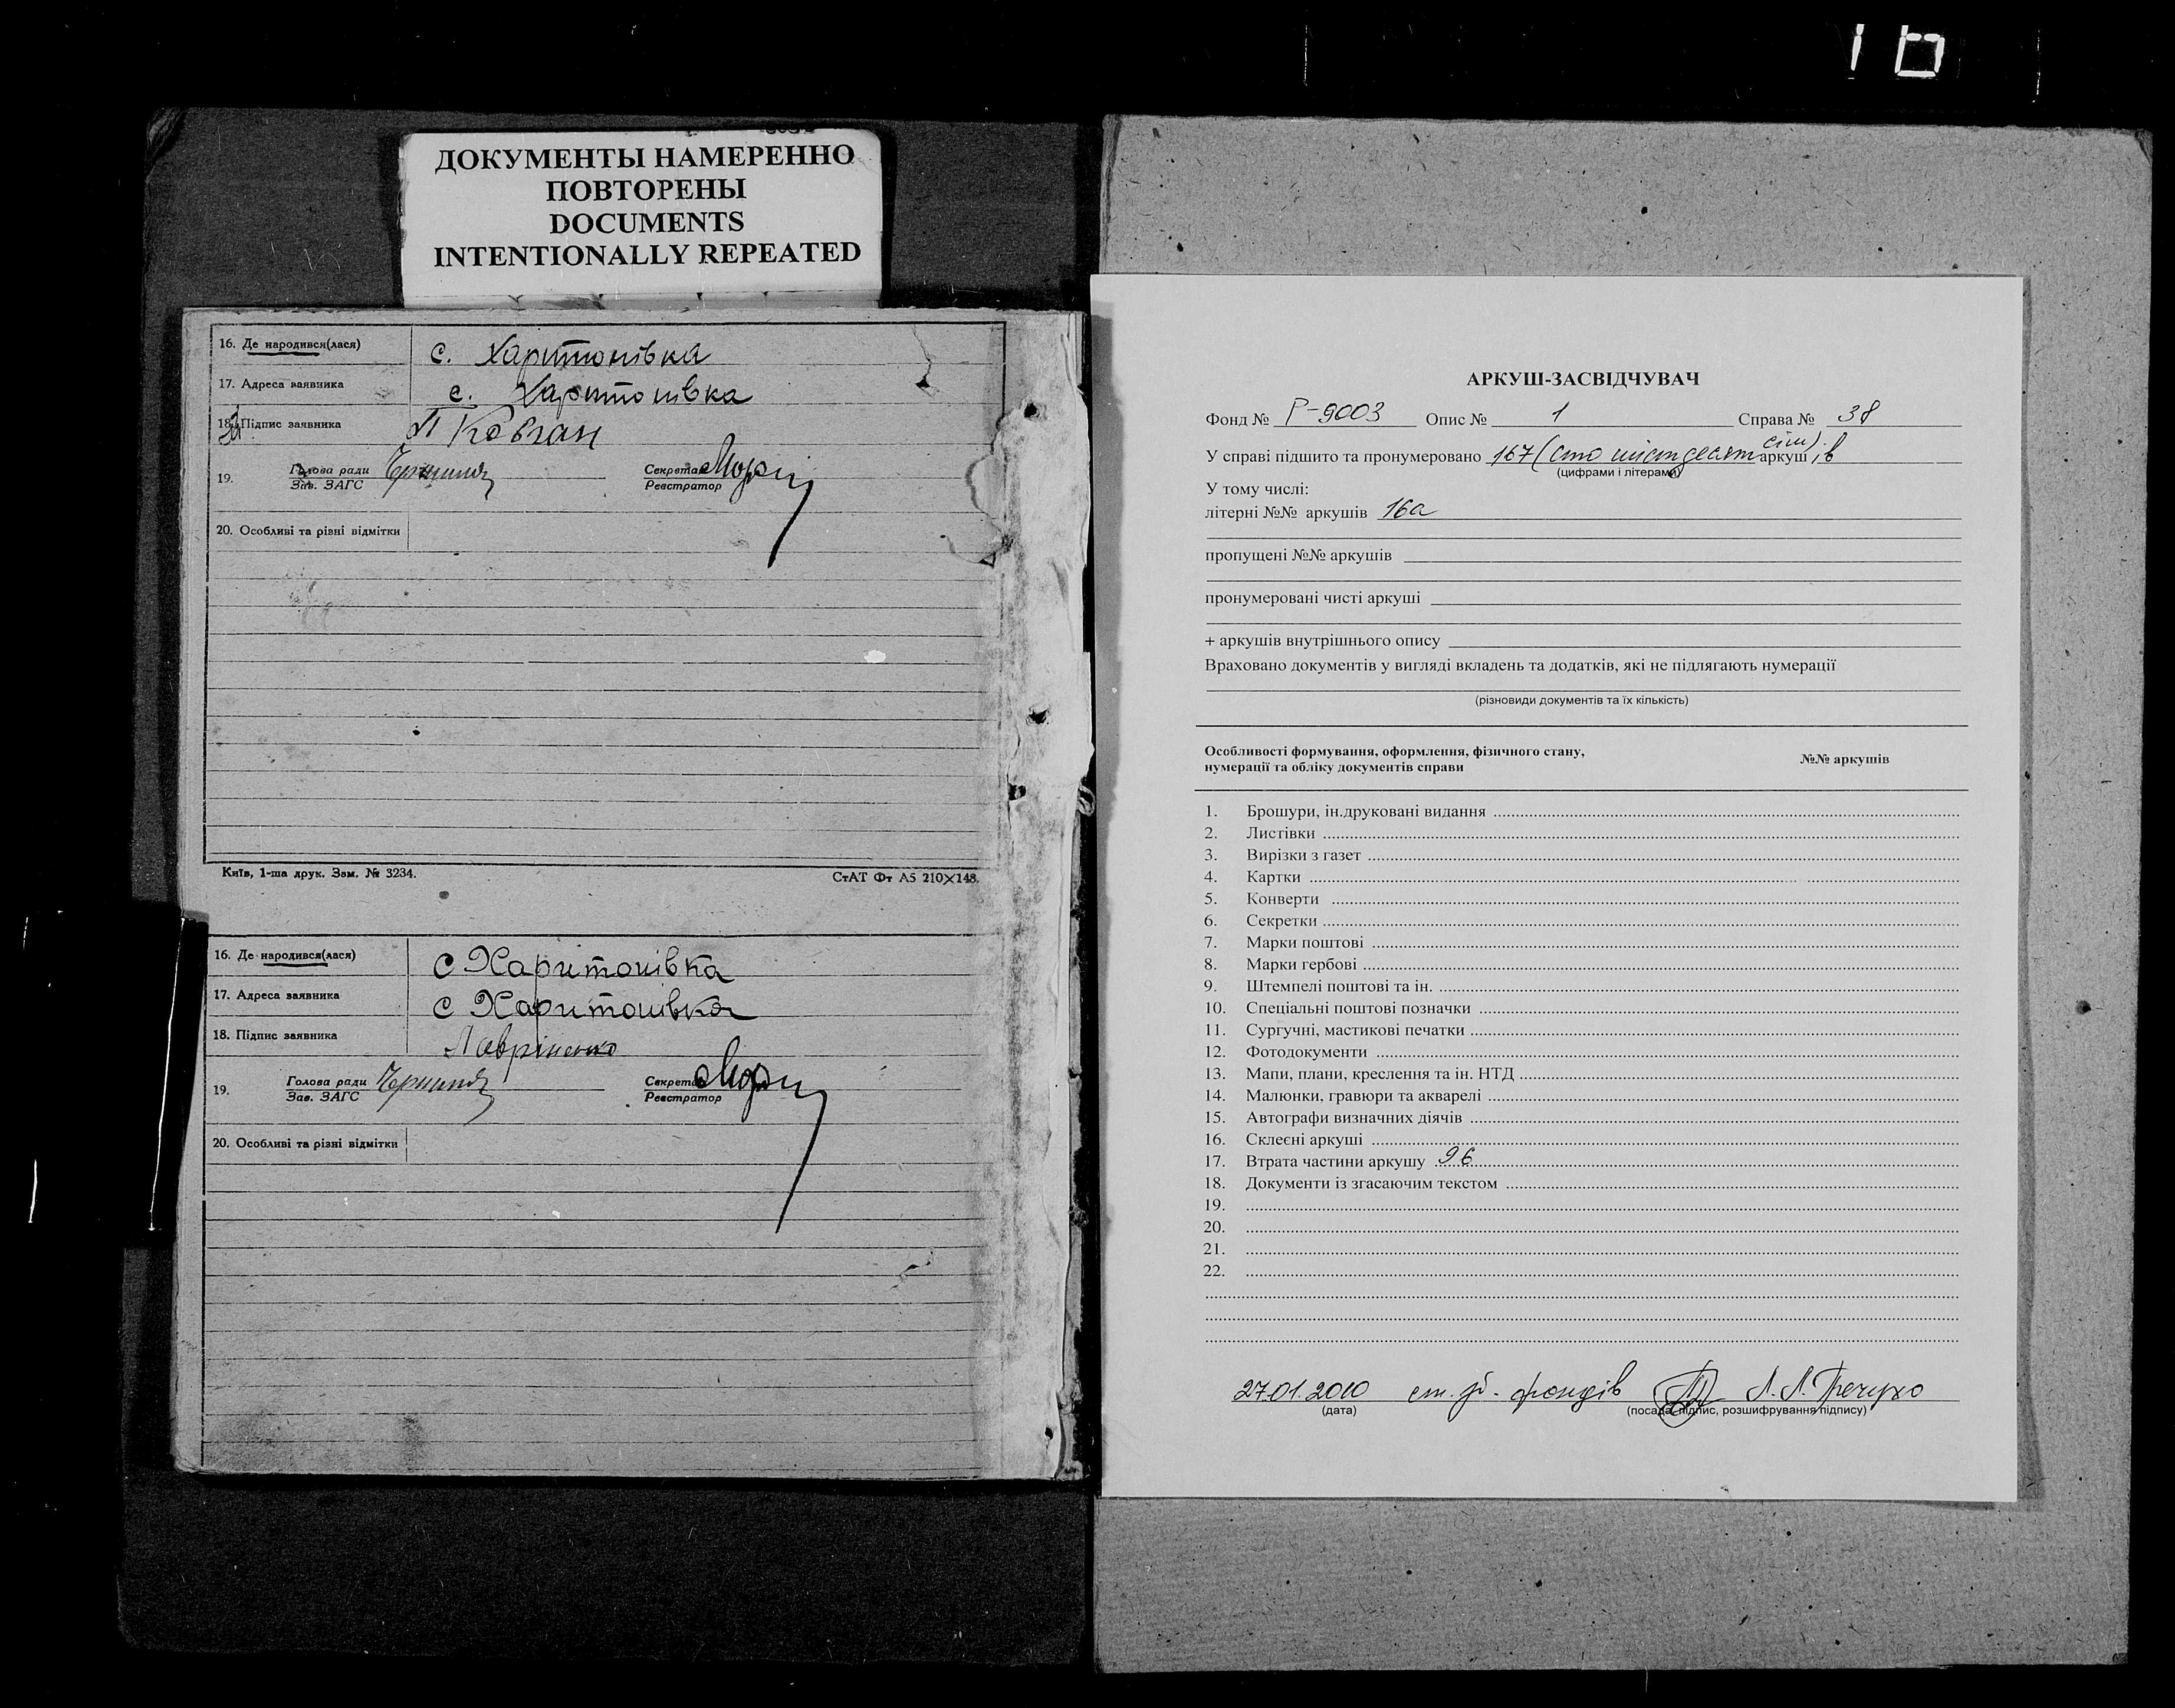 ДОКУМЕНТЫ НАМЕРЕННО
ПОВТОРЕНЫ
DOCUMENTS
INTENTIONALLY REPEATED
16. Де народився(лася) с. Харитонівка
17. Адреса заявника с. Харитонівка
18. Підпис заявника П Ковган
19. Голова ради Секретар
Зав. ЗАГС Реєстратор
20. Особливі та рівні відмітки
Київ, 1-ша друк. Зам. № 3234. СтАТ Фт А5 210×148.
16. Де народився(лася) с Харитонівка
17. Адреса заявника с Харитонівка
18. Підпис заявника Лавріненко
19. Голова ради Секретар
Зав. ЗАГС Реєстратор
20. Особливі та різні відмітки
АРКУШ-ЗАСВІДЧУВАЧ
Фонд № Р-9003 Опис № 1 Справа № 38
У справі підшито та пронумеровано 167 (сто шістдесят сім) аркушів
(цифрами і літерами)
У тому числі:
літерні №№ аркушів 16а
пропущені №№ аркушів
пронумеровані чисті аркуші
+ аркушів внутрішнього опису
Враховано документів у вигляді вкладень та додатків, які не підлягають нумерації
(різновиди документів та їх кількість)
Особливості формування, оформлення, фізичного стану,
нумерації та обліку документів справи №№ аркушів
1. Брошури, ін.друковані видання
2. Листівки
3. Вирізки з газет
4. Картки
5. Конверти
6. Секретки
7. Марки поштові
8. Марки гербові
9. Штемпелі поштові та ін.
10. Спеціальні поштові позначки
11. Сургучні, мастикові печатки
12. Фотодокументи
13. Мапи, плани, креслення та ін. НТД
14. Малюнки, гравюри та акварелі
15. Автографи визначних діячів
16. Склеєні аркуші
17. Втрата частини аркушу 96
18. Документи із згасаючим текстом
19.
20.
21.
22.
27.01.2010 ст. зб. фондів Л. Л.
(дата) (посада, підпис, розшифрування підпису)